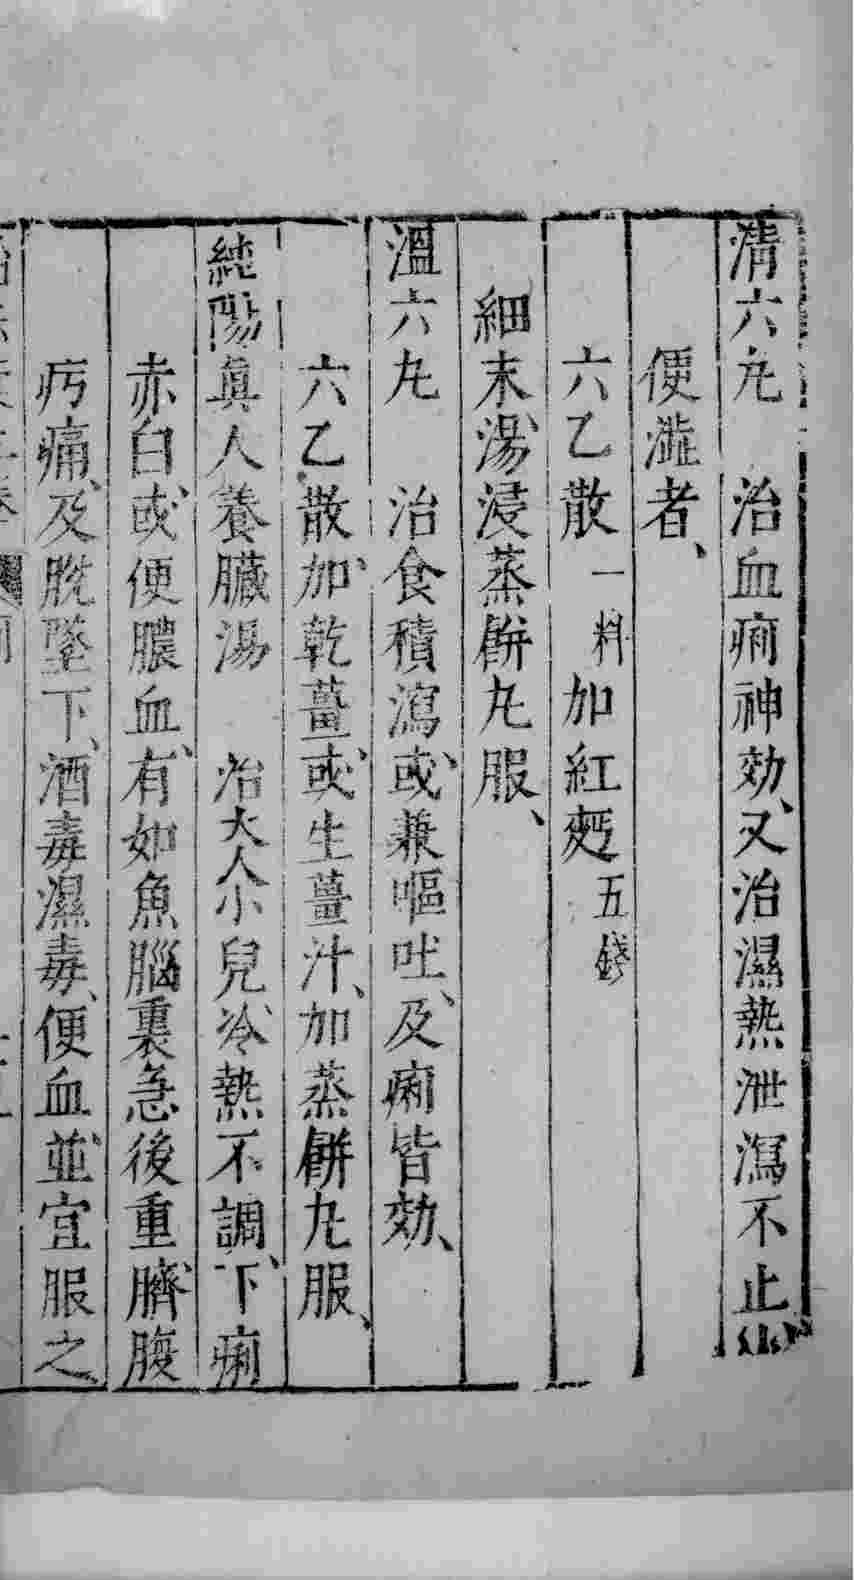 清六丸　治血痢神効、又治濕熱泄瀉不止
便澁者、
六乙散一料加紅麯五錢
細末、湯浸蒸餅丸服、
溫六丸　治食積瀉、或兼嘔吐、及痢皆効、
六乙散加乾薑、或生薑汁、加蒸餅丸服、
純陽眞人養臟湯　治大人小兒冷熱不調、下痢
赤白、或便膿血、有如魚腦、裏急後重、臍腹
㽲痛、及脫墜下、酒毒濕毒、便血、並宜服之、